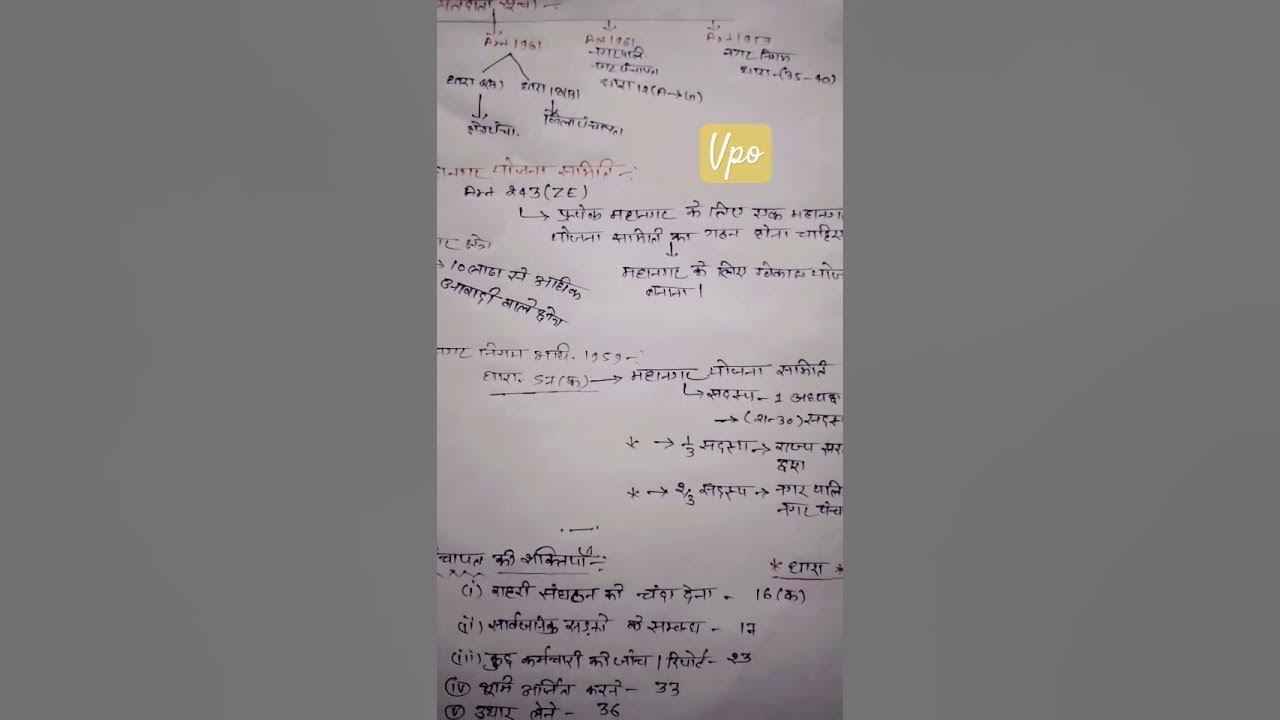 मतदाता सूची :-
Act 1961
Act 1961
Act 1959
नगरपालि.
नगर पंचायत
धारा 12(A→G)
नगर निगम
धारा-(35-40)
धारा 6(B)
धारा 18(B)
क्षेत्र पंचा.
जिला पंचायत
Vpo
महानगर योजना समिति :-
Art 243(ZE)
↳ प्रत्येक महानगर के लिए एक महानगर
योजना समिति का गठन होना चाहिए
महानगर के लिए विकास योज
बनाना।
क्षेत्र
→ 10 लाख से अधिक
आबादी वाले क्षेत्र
नगर निगम अधि. 1959-:
धारा- 57(क) → महानगर योजना समिति
↳ सदस्य - 1 अध्यक्ष
→ (21-30) सदस्य
* → 1/3 सदस्य → राज्य सर
द्वारा
* → 2/3 सदस्य → नगर पालि
नगर पंचा
चायत की शक्तियाँ :-
* धारा *
(i) बाहरी संघठन को चंदा देना - 16(क)
(ii) सार्वजनिक सड़को के सम्बन्ध - 17
(iii) कुछ कर्मचारी की जांच । रिपोर्ट - 23
(iv) भूमि अर्जित करने - 33
(v) उधार लेने - 36